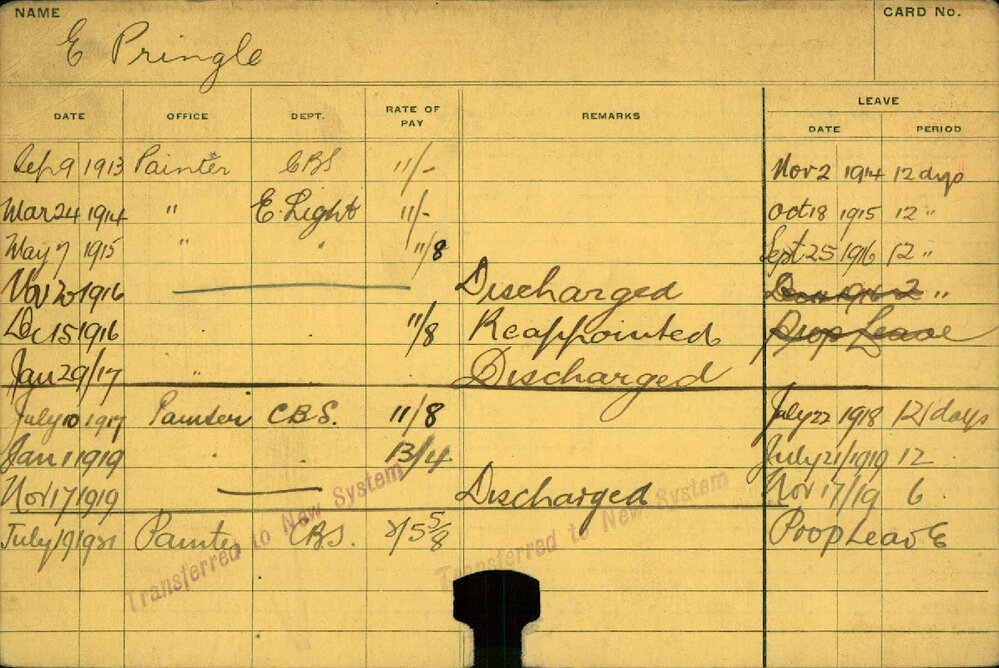 NAME CARD No.
E Pringle
LEAVE
DATE OFFICE DEPT. RATE OF PAY REMARKS DATE PERIOD
Sep 9 1913 Painter CBS 11/- Nov 2 1914 12 days
Mar 24 1914 " E. Light 11/- Oct 18 1915 12 "
May 7 1915 " " 11/8 Sept 25 1916 12 "
Nov 20 1916 Discharged Dec 1916 2 "
Dec 15 1916 11/8 Reappointed Prop Leave
Jan 29/17 " Discharged
July 10 1917 Painter C.B.S. 11/8 July 22 1918 12 days
Jan 1 1919 " " 13/4 July 21/1919 12
Nov 17 1919 Discharged Nov 17/19 6
July 19 1921 Painter CBS. 2/5 5/8 Prop Leave
Transferred to New System
Transferred to New System